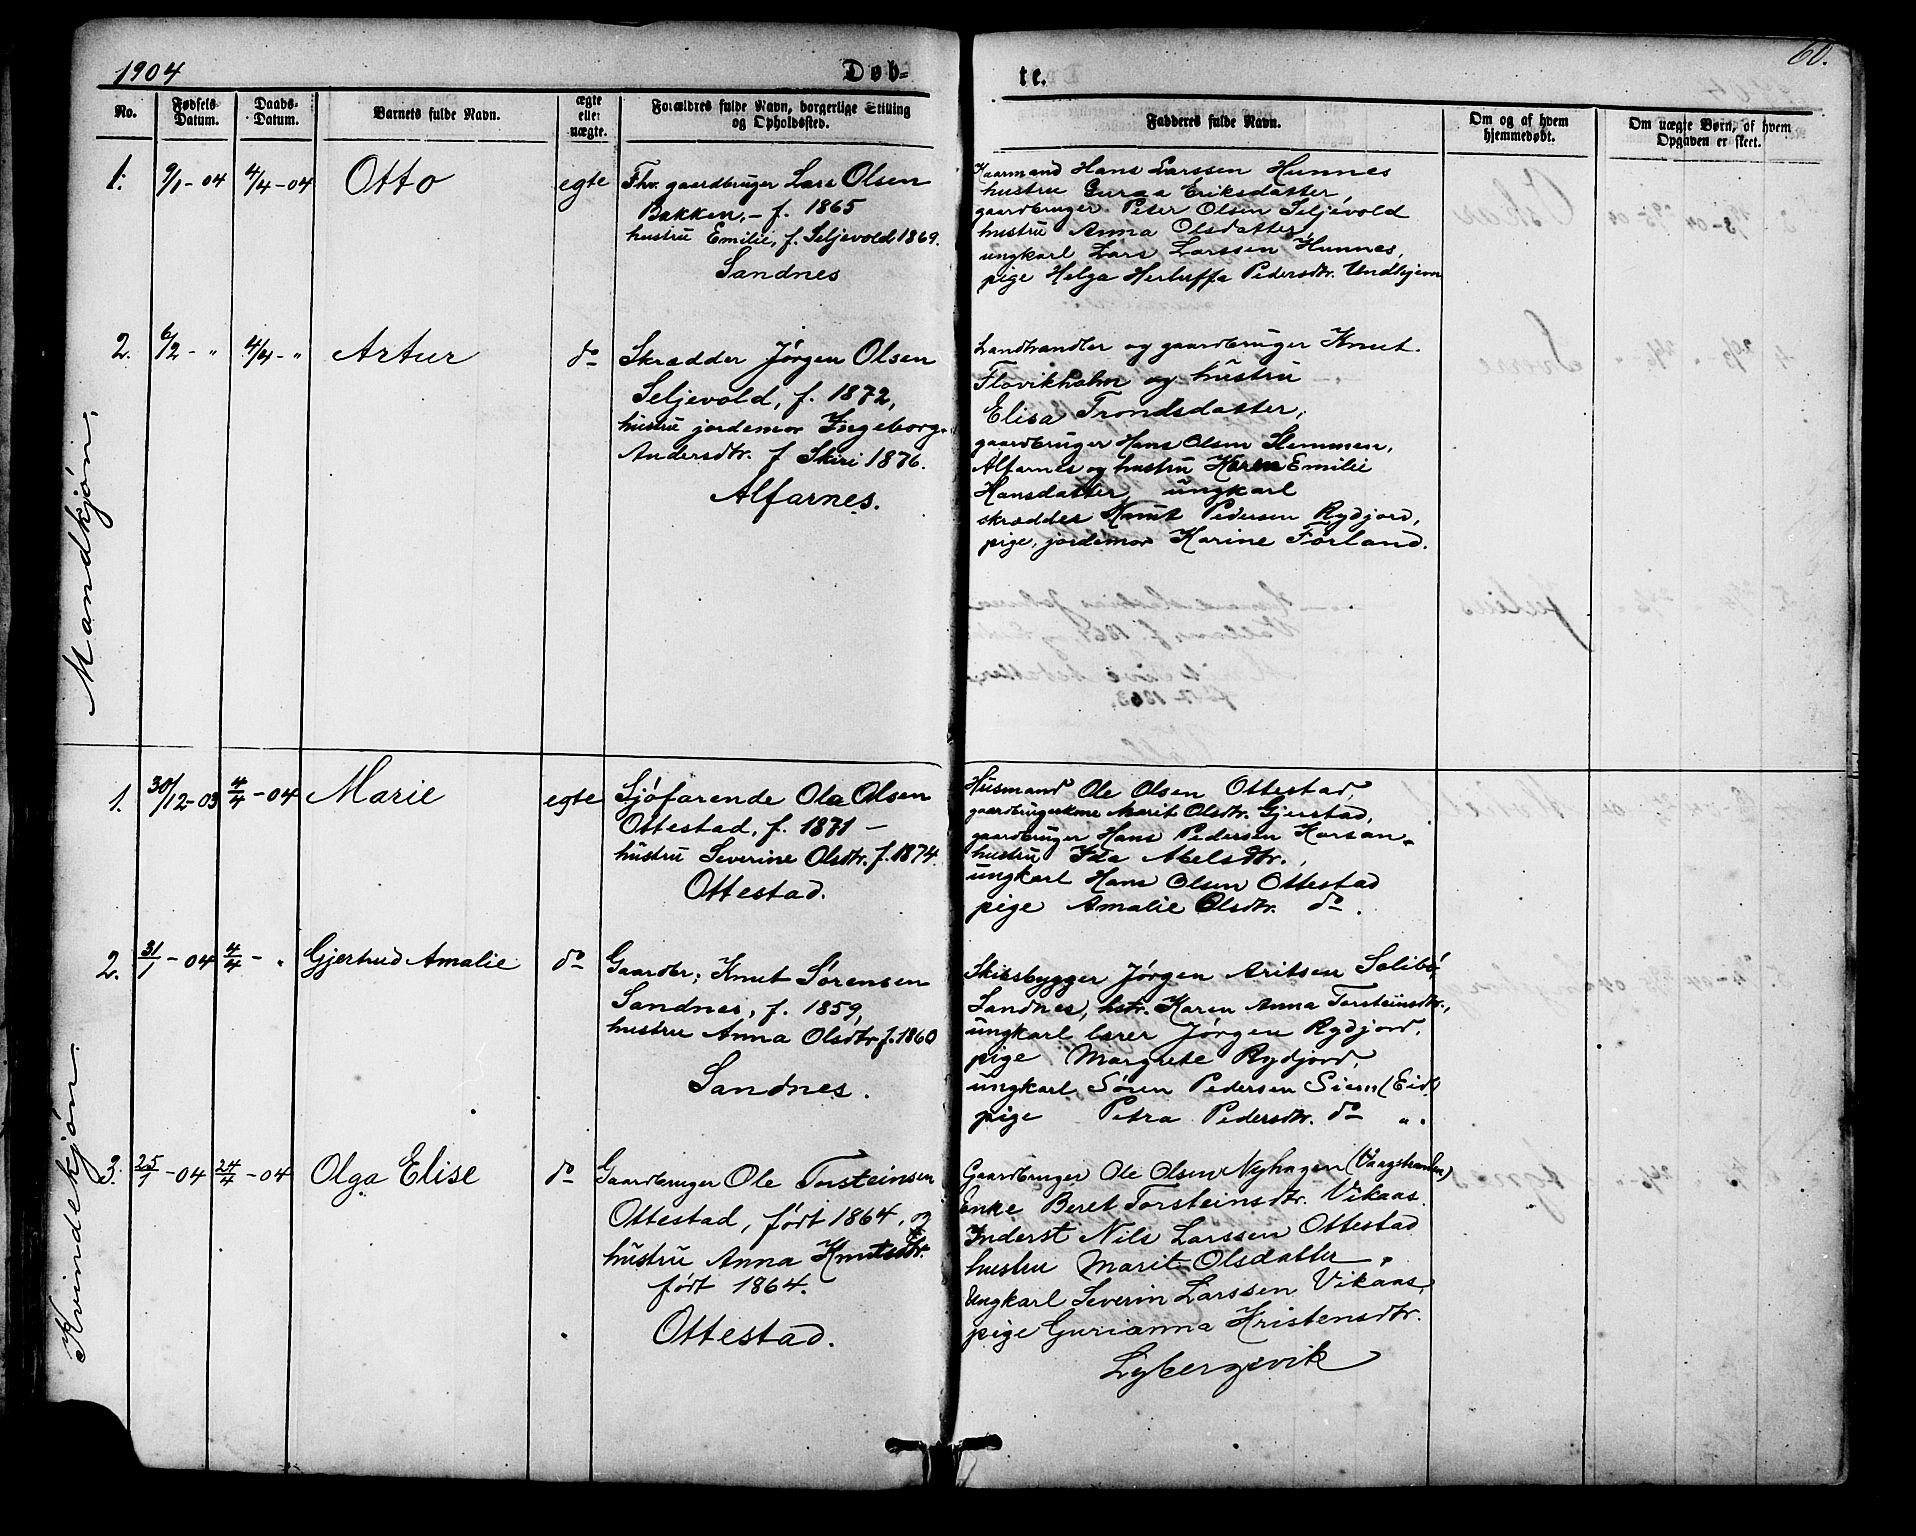 1904
Døb-
te.
60.
No.
Fødsels Datum.
Daabs-Datum.
Barnets fulde Navn.
ægte eller uægte.
Forældres fulde Navn, borgerlige Stilling og Opholdssted.
Faddernes fulde Navn.
Om og af hvem hjemmedøbt.
Om uægte Børn, af hvem Opgaven er skeet.
Mandkjøn.
1. 9/1-04 4/4-04 Otto egte
Fhv. gaardbruger Lars Olsen
Bakken, - f. 1865
hustru Emilie, f. Seljevold 1869.
Sandnes
Kaarmand Hans Larssen Hunnes
hustru Guraa Eriksdatter,
gaardbruger Peter Olsen Seljevold
hustru Anna Olsdatter,
ungkarl Lars Larssen Hunnes,
pige Helga Herluffa Pedersdtr. Undhjem
2. 6/2 - " 4/4 - " Artur do
Skrædder Jørgen Olsen
Seljevold, f. 1872,
hustru jordemor Ingeborg
Andersdtr. f. Skiri 1876.
Alfarnes.
Landhandler og gaardbruger Knut
Flovikholm og hustru
Elisa Trondsdatter,
gaardbruger Hans Olsen Slemmen,
Alfarnes og hustru Karen Emilie
Hansdatter, ungkarl
skrædder Knut Pedersen Rydjord,
pige, jordemor Karine Førland.
Kvindekjøn.
1. 30/12-03 4/4-04 Marie egte
Sjøfarende Ola Olsen
Ottestad, f. 1871 -
hustru Severine Olsdtr. f. 1874.
Ottestad.
Husmand Ole Olsen Ottestad,
gaardbrugerkone Marit Olsdtr. Gjerstad,
gaardbruger Hans Pedersen Horsan-
hustru Ida Abelsdtr.,
ungkarl Hans Olsen Ottestad
pige Amalie Olsdtr. do.
2. 31/1-04 4/4 - " Gjertrud Amalie do
Gaardbr. Knut Sørensen
Sandnes, f. 1859,
hustru Anna Olsdtr f. 1860
Sandnes.
Skibsbygger Jørgen Aritsen Solibø,
Sandnes, hstr. Karen Anna Torsteinsdtr.,
ungkarl lærer Jørgen Rydjord,
pige Margrete Rydjord,
ungkarl Søren Pedersen (Eid)
pige Petra Pedersdtr. do ".
3. 25/1-04 24/4-04 Olga Elise do
Gaardbruger Ole Torsteinsen
Ottestad, født 1864, og
hustru Anna Knutsdtr.
født 1864.
Ottestad.
Gaardbruger Ole Olsen Nyhagen (Vaagstranden)
Enke Beret Torsteinsdtr. Vikaas
Inderst Nils Larssen Ottestad
hustru Marit Olsdatter "
Ungkarl Severin Larssen Vikaas,
pige Gurianna Kristensdtr.
Lybergsvik